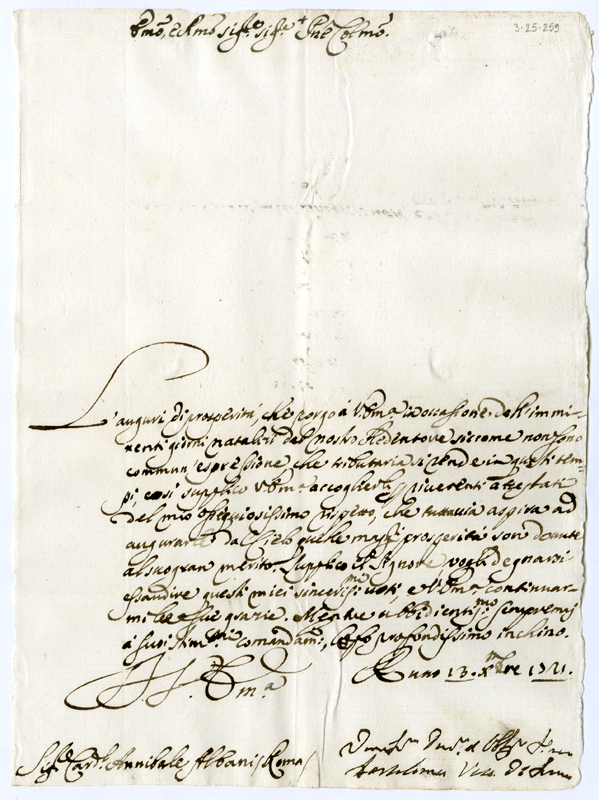 Emo, e Rmo Sig.re Sig.re Pne Colmo.
3-25-259
L'auguri di prosperità, che porgo à V. Em.a in occassione dell'immi-
nenti giorni natalizi del nostro Redentore siccome non sono
commun espressione che tributaria si rende in questi tem-
pi, così supplico V. Em.a accoglierli riverenti attestati
del mio ossequiosissimo rispetto, che tuttavia aspira ad
augurarle dal Cielo quelle prosperità son dovute
al suo gran merito. Supplico il Signore vogli degnarsi
essaudire questi miei sincerissimi voti e V. Em.a continuar-
mi le sue grazie. Mentre ubbidientis.mo sempremai
à suoi stim.mi comandam.ti, le fò profondissimo inchino.
Luno 13. Xbre 1721.
Em.a
Sig.re Card.le Annibale Albani / Roma /
Bartolomeo Vesc. di